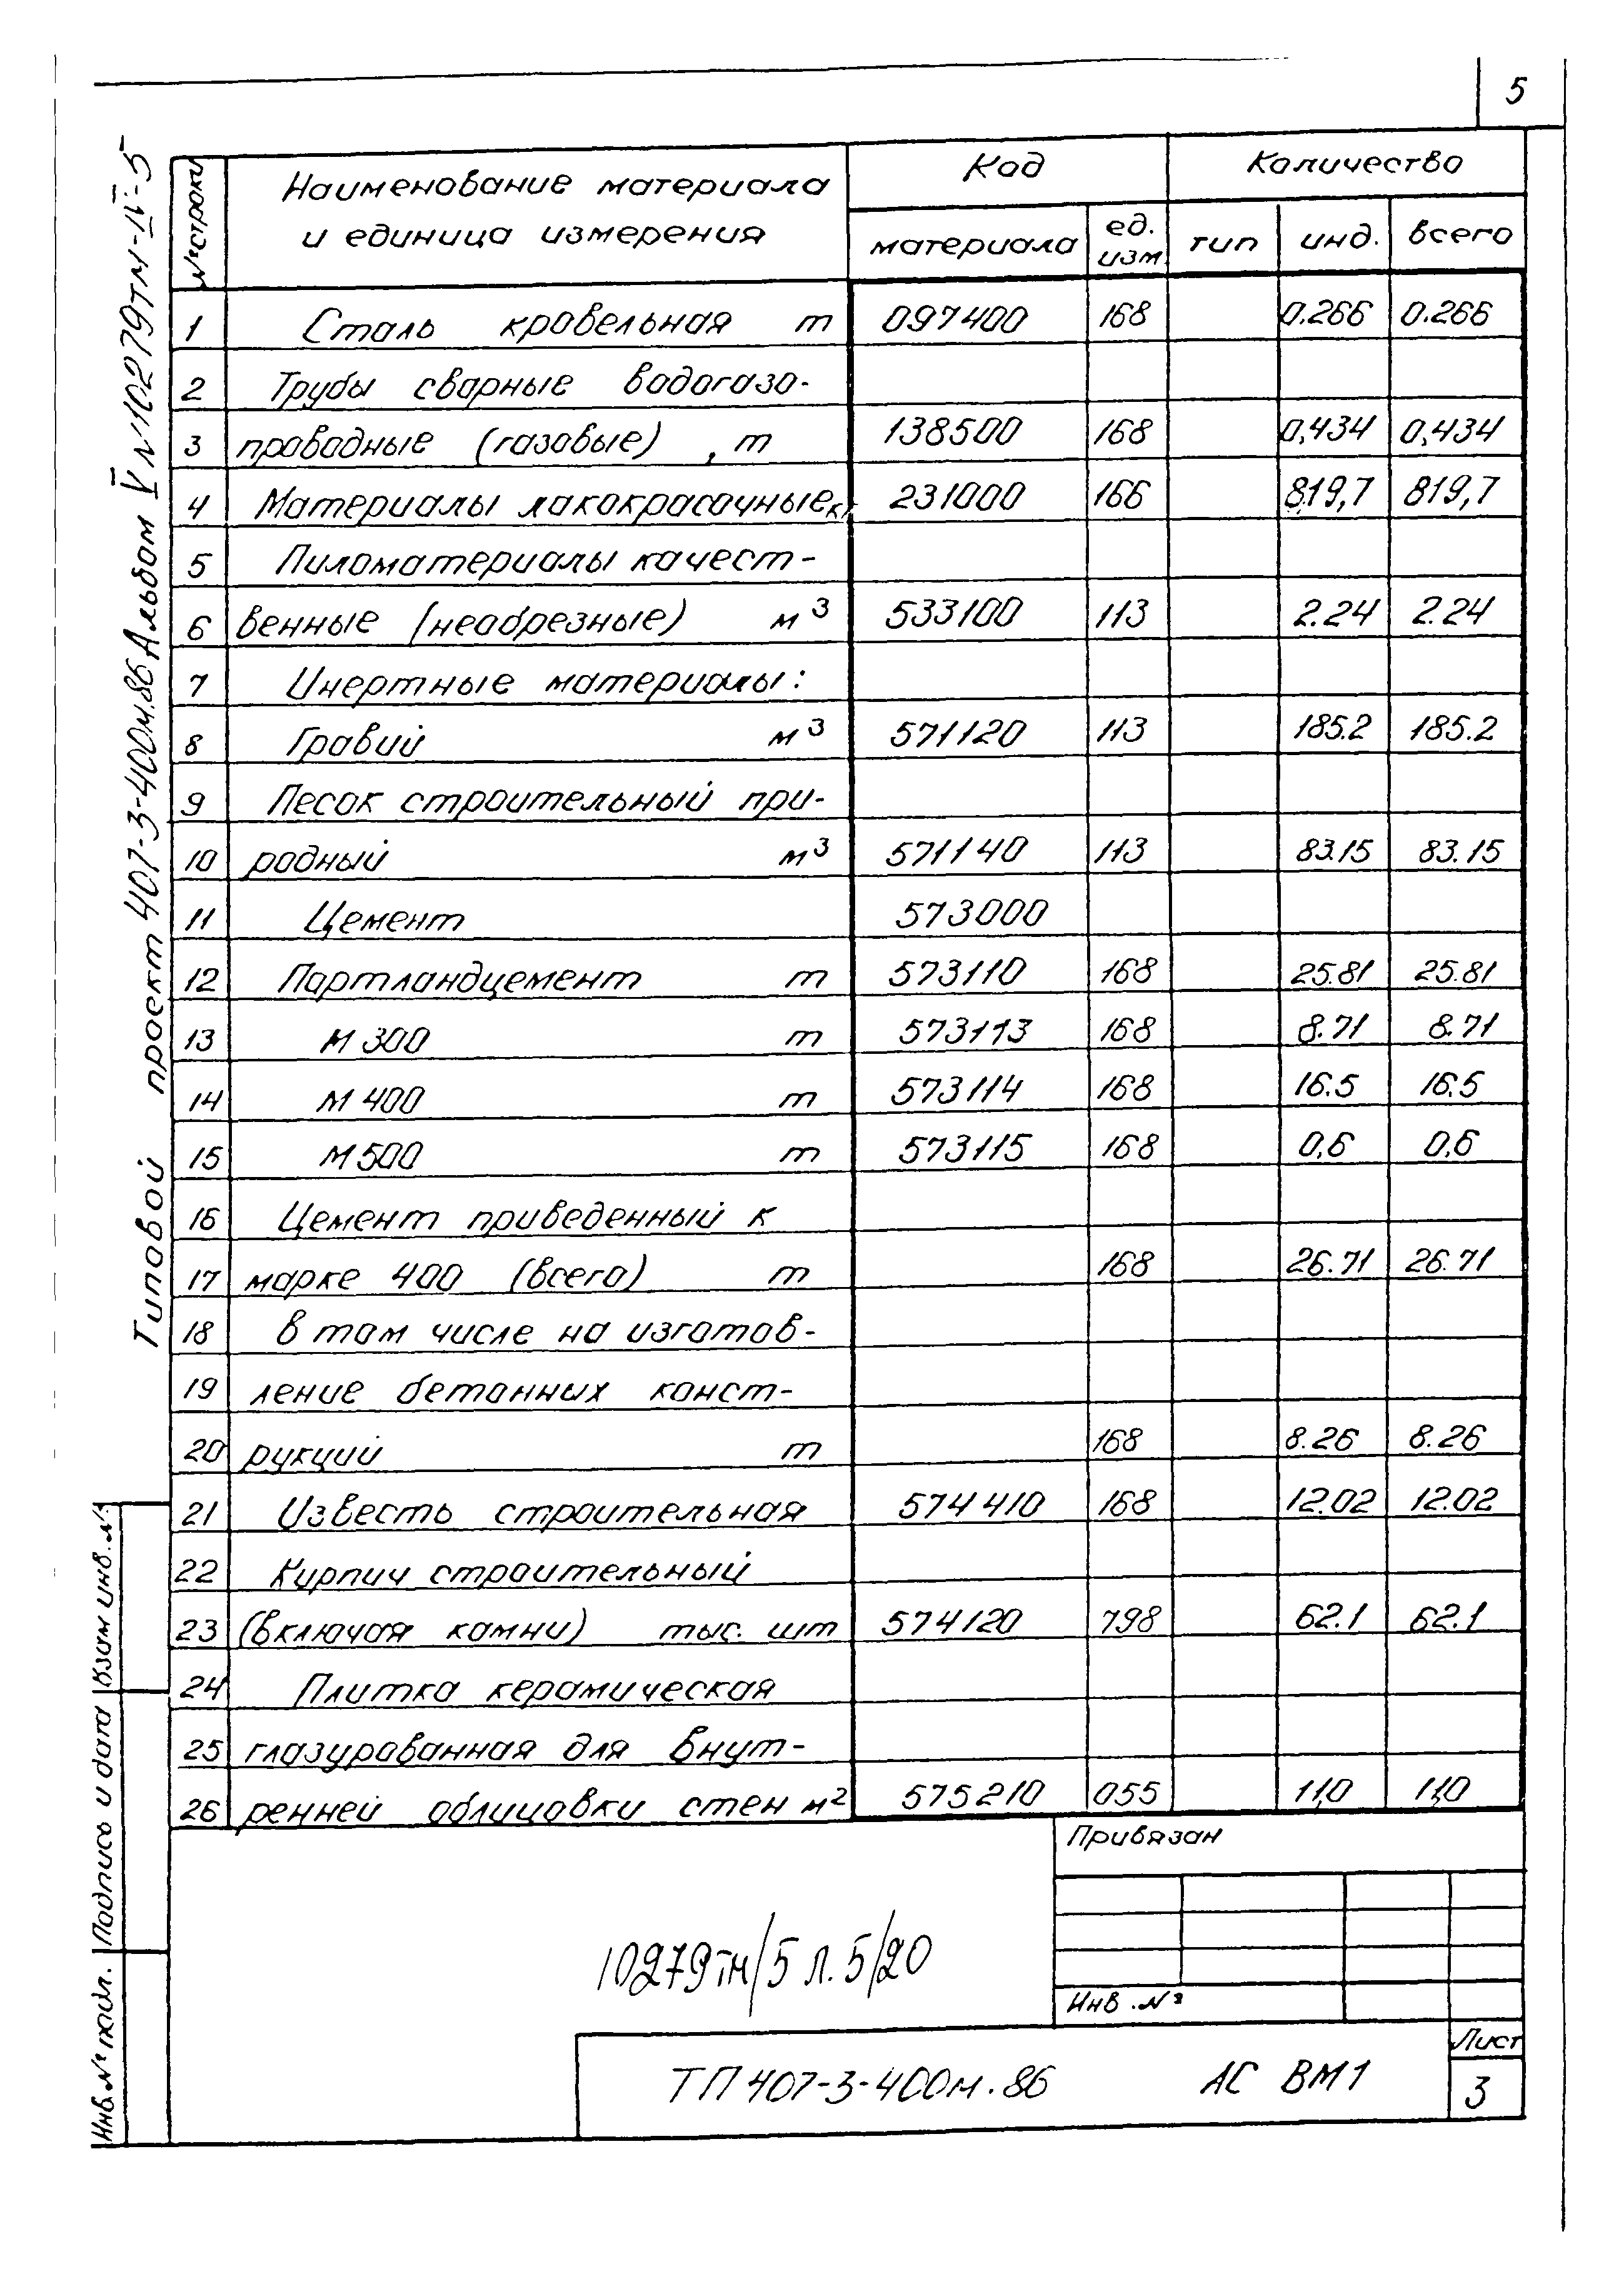 5
Типовой проект 407-3-400м.86 Альбом V №10279тм-IV-5
№ строки
Наименование материала и единица измерения
Код
Количество
материала
ед. изм.
тип
инд.
всего
1 Сталь кровельная т 097400 168 0.266 0.266
2 Трубы сварные водогазо-
3 проводные (газовые) , т 138500 168 0,434 0,434
4 Материалы лакокрасочные кг 231000 166 819,7 819,7
5 Пиломатериалы качест-
6 венные (необрезные) м³ 533100 113 2.24 2.24
7 Инертные материалы:
8 Гравий м³ 571120 113 185.2 185.2
9 Песок строительный при-
10 родный м³ 571140 113 83.15 83.15
11 Цемент 573000
12 Портландцемент т 573110 168 25.81 25.81
13 М 300 т 573113 168 8.71 8.71
14 М 400 т 573114 168 16.5 16.5
15 М 500 т 573115 168 0,6 0,6
16 Цемент приведенный к
17 марке 400 (всего) т 168 26.71 26.71
18 в том числе на изготов-
19 ление бетонных конст-
20 рукций т 168 8.26 8.26
21 Известь строительная 574410 168 12.02 12.02
22 Кирпич строительный
23 (включая камни) тыс. шт 574120 798 62.1 62.1
24 Плитка керамическая
25 глазурованная для внут-
26 ренней облицовки стен м² 575210 055 11,0 11,0
Привязан
Инв. №
10279тм/5 л. 5/20
ТП 407-3-400м.86 АС ВМ1
Лист
3
Взам инв. №
Подпись и дата
Инв. № подл.